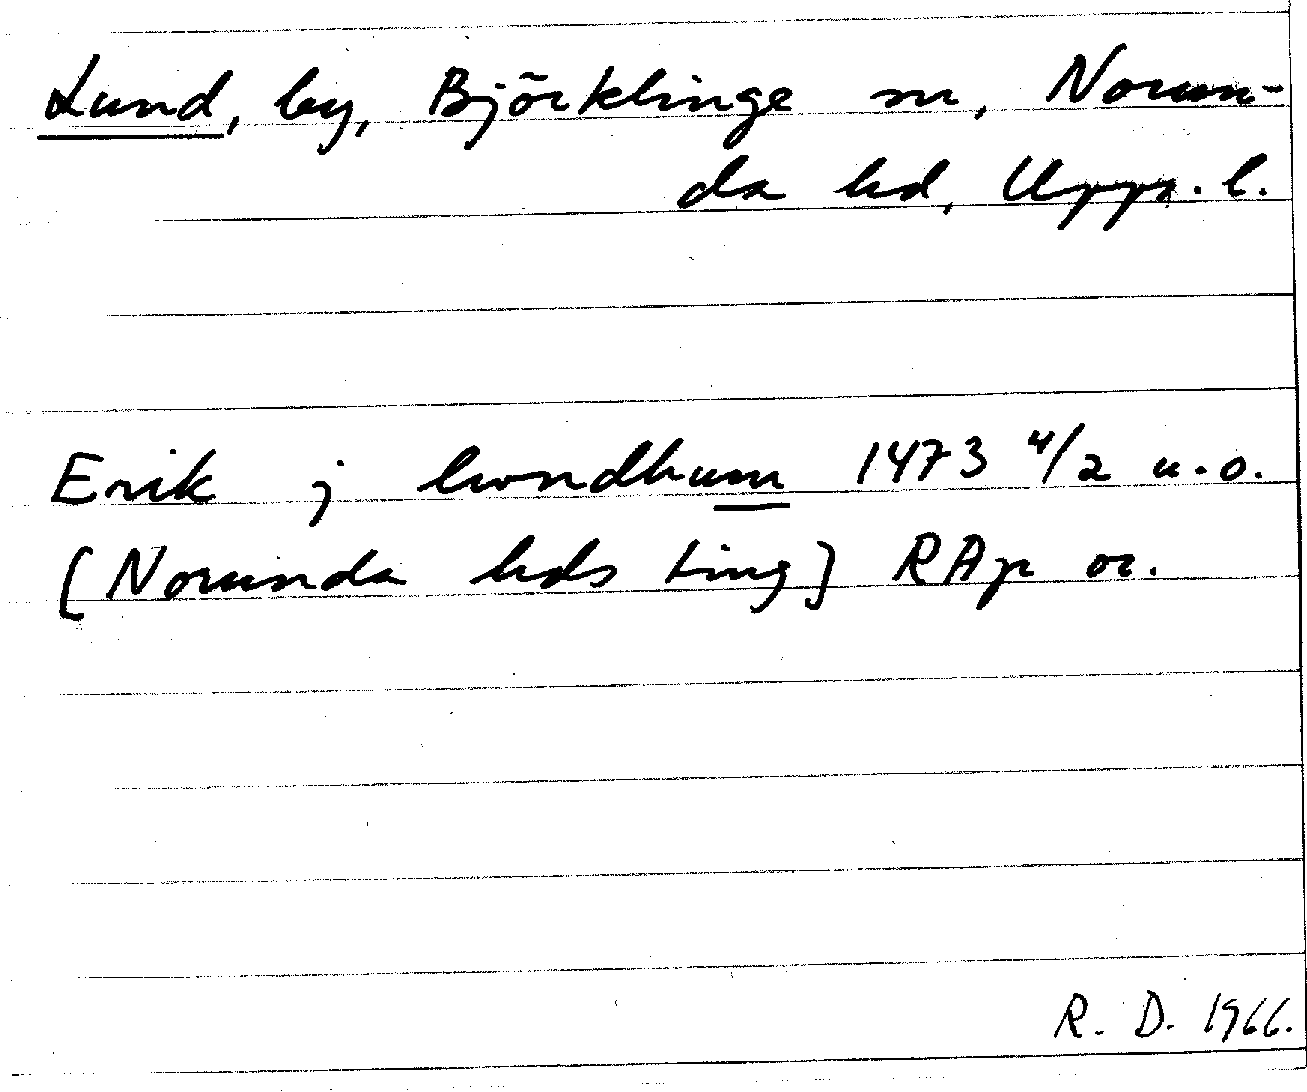 Lund, by, Björklinge sn, Norun-
da hd, Upps. l.
Erik j lwndhum 1473 4/2 u.o.
(Norunda hds ting) RAp or.
R. D. 1966.